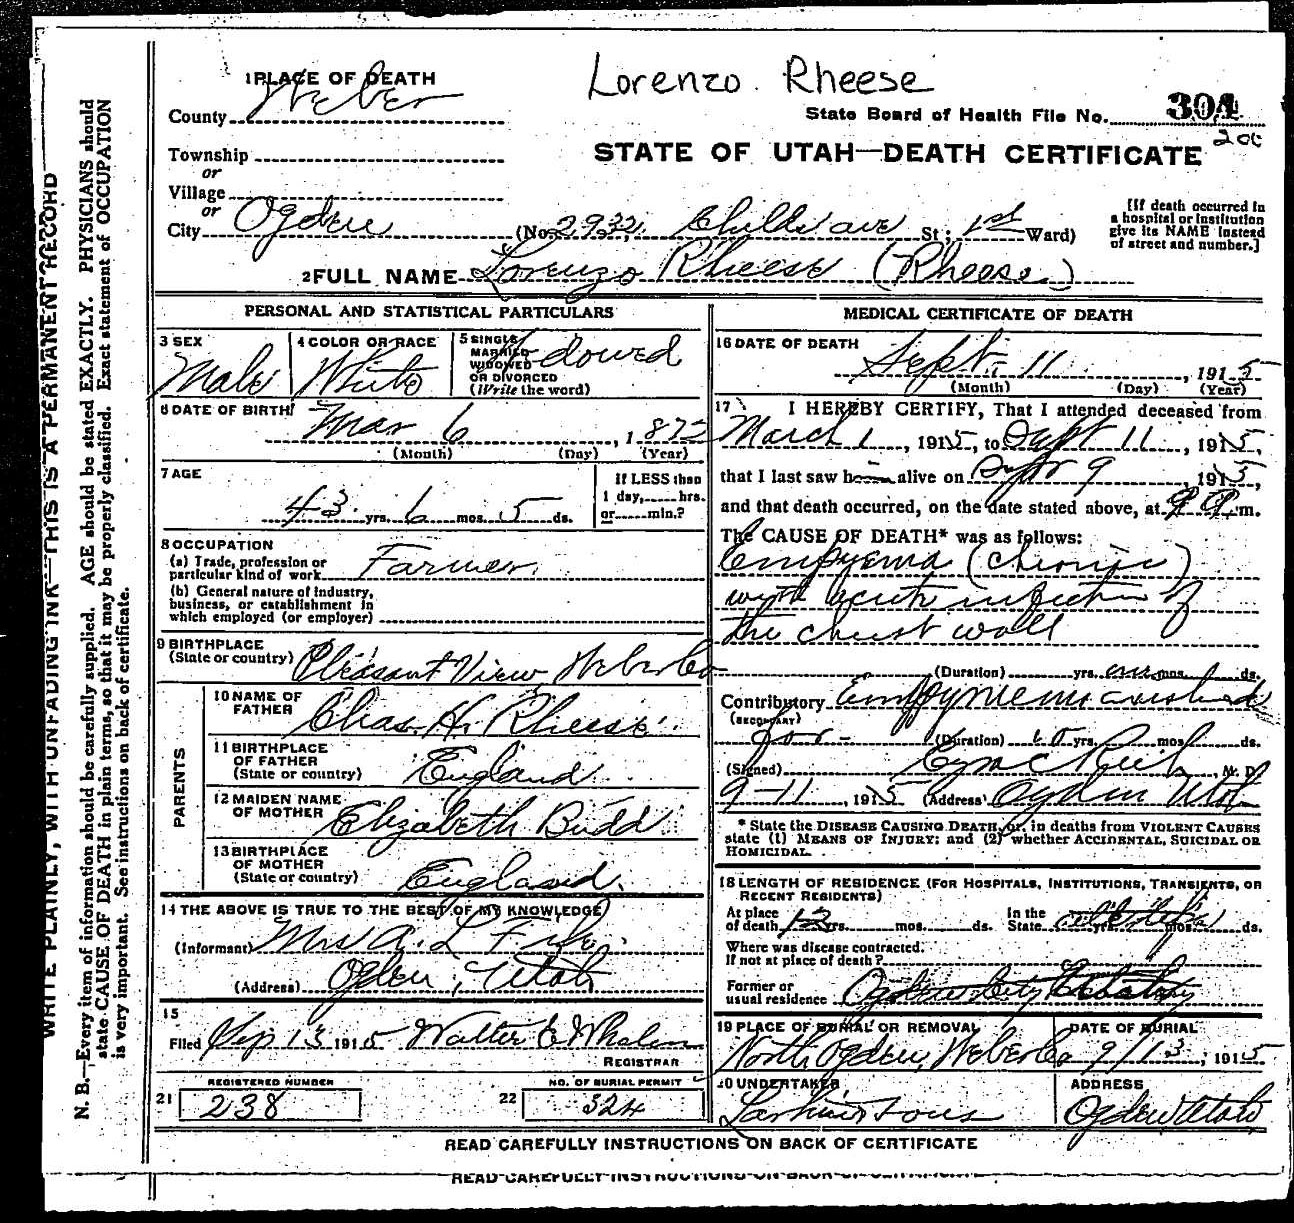 Lorenzo Rheese
1 PLACE OF DEATH
County Weber
State Board of Health File No. 304
200
Township
or
Village
or
City Ogden
STATE OF UTAH—DEATH CERTIFICATE
(No. 2932, Childs ave St; 1st Ward)
[If death occurred in
a hospital or institution
give its NAME instead
of street and number.]
2 FULL NAME Lorenzo Rheese (Rheese)
PERSONAL AND STATISTICAL PARTICULARS
3 SEX
Male
4 COLOR OR RACE
White
5 SINGLE
MARRIED
WIDOWED
OR DIVORCED
(Write the word)
6 DATE OF BIRTH
Mar 6, 1872
(Month) (Day) (Year)
7 AGE
43 yrs. 6 mos. 5 ds.
If LESS than
1 day, hrs.
or min.?
8 OCCUPATION
(a) Trade, profession or
particular kind of work Farmer
(b) General nature of Industry,
business, or establishment in
which employed (or employer)
9 BIRTHPLACE
(State or country) Pleasant View Weber Co
PARENTS
10 NAME OF
FATHER
Chas. H. Rheese
11 BIRTHPLACE
OF FATHER
(State or country) England
12 MAIDEN NAME
OF MOTHER
Elizabeth Budd
13 BIRTHPLACE
OF MOTHER
(State or country) England.
14 THE ABOVE IS TRUE TO THE BEST OF MY KNOWLEDGE
(Informant) Mrs A. L. Fife.
(Address) Ogden, Utah
15
Filed Sep 13 1915 Walter E Whalen
REGISTRAR
REGISTERED NUMBER
21 238
NO. OF BURIAL PERMIT
22 324
MEDICAL CERTIFICATE OF DEATH
16 DATE OF DEATH
Sept. 11, 1915
(Month) (Day) (Year)
17 I HEREBY CERTIFY, That I attended deceased from
March 1, 1915, to Sept 11, 1915,
that I last saw him alive on Sept 9, 1915,
and that death occurred, on the date stated above, at 9 P. m.
The CAUSE OF DEATH* was as follows:
Empyema (chronic)
with acute infection of
the chest wall
(Duration) yrs. one mos. ds.
Contributory Empyema existed
(SECONDARY)
for - (Duration) 10 yrs. mos. ds.
(Signed) Ezra C Rich, M. D.
9-11, 1915 (Address) Ogden Utah
* State the DISEASE CAUSING DEATH, or, in deaths from VIOLENT CAUSES
state (1) MEANS OF INJURY; and (2) whether ACCIDENTAL, SUICIDAL OR
HOMICIDAL.
18 LENGTH OF RESIDENCE (FOR HOSPITALS, INSTITUTIONS, TRANSIENTS, OR
RECENT RESIDENTS)
At place
of death 13 yrs. mos. ds.
In the
State yrs. mos. ds.
Where was disease contracted.
If not at place of death?
Former or
usual residence Ogden City
19 PLACE OF BURIAL OR REMOVAL
North Ogden, Weber Co
DATE OF BURIAL
9/13, 1915
20 UNDERTAKER
Larkin & Sons
ADDRESS
Ogden Utah
READ CAREFULLY INSTRUCTIONS ON BACK OF CERTIFICATE
READ CAREFULLY INSTRUCTIONS ON BACK OF CERTIFICATE
WRITE PLAINLY, WITH UNFADING INK—THIS IS A PERMANENT RECORD
N. B.—Every item of information should be carefully supplied. AGE should be stated EXACTLY. PHYSICIANS should
state CAUSE OF DEATH in plain terms, so that it may be properly classified. Exact statement of OCCUPATION
is very important. See instructions on back of certificate.